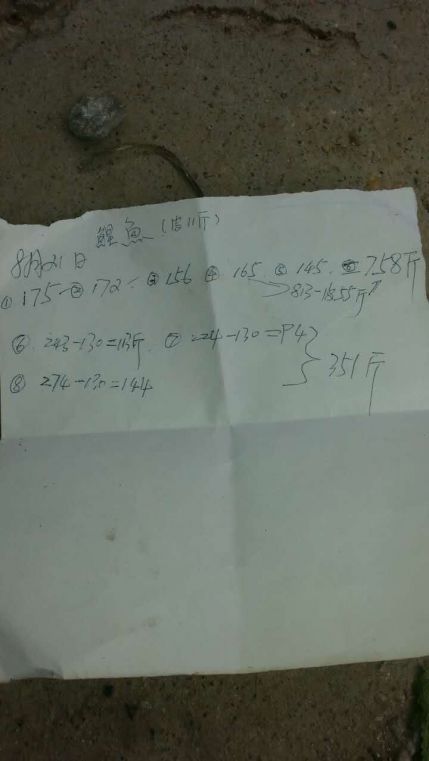 8月21日 鲤鱼(皮11斤)
① 175 ② 172 ③ 156 ④ 165 ⑤ 145 = 758斤
813-55斤
⑥ 243-130=113斤. ⑦ 224-130=94
⑧ 274-130=144
351斤